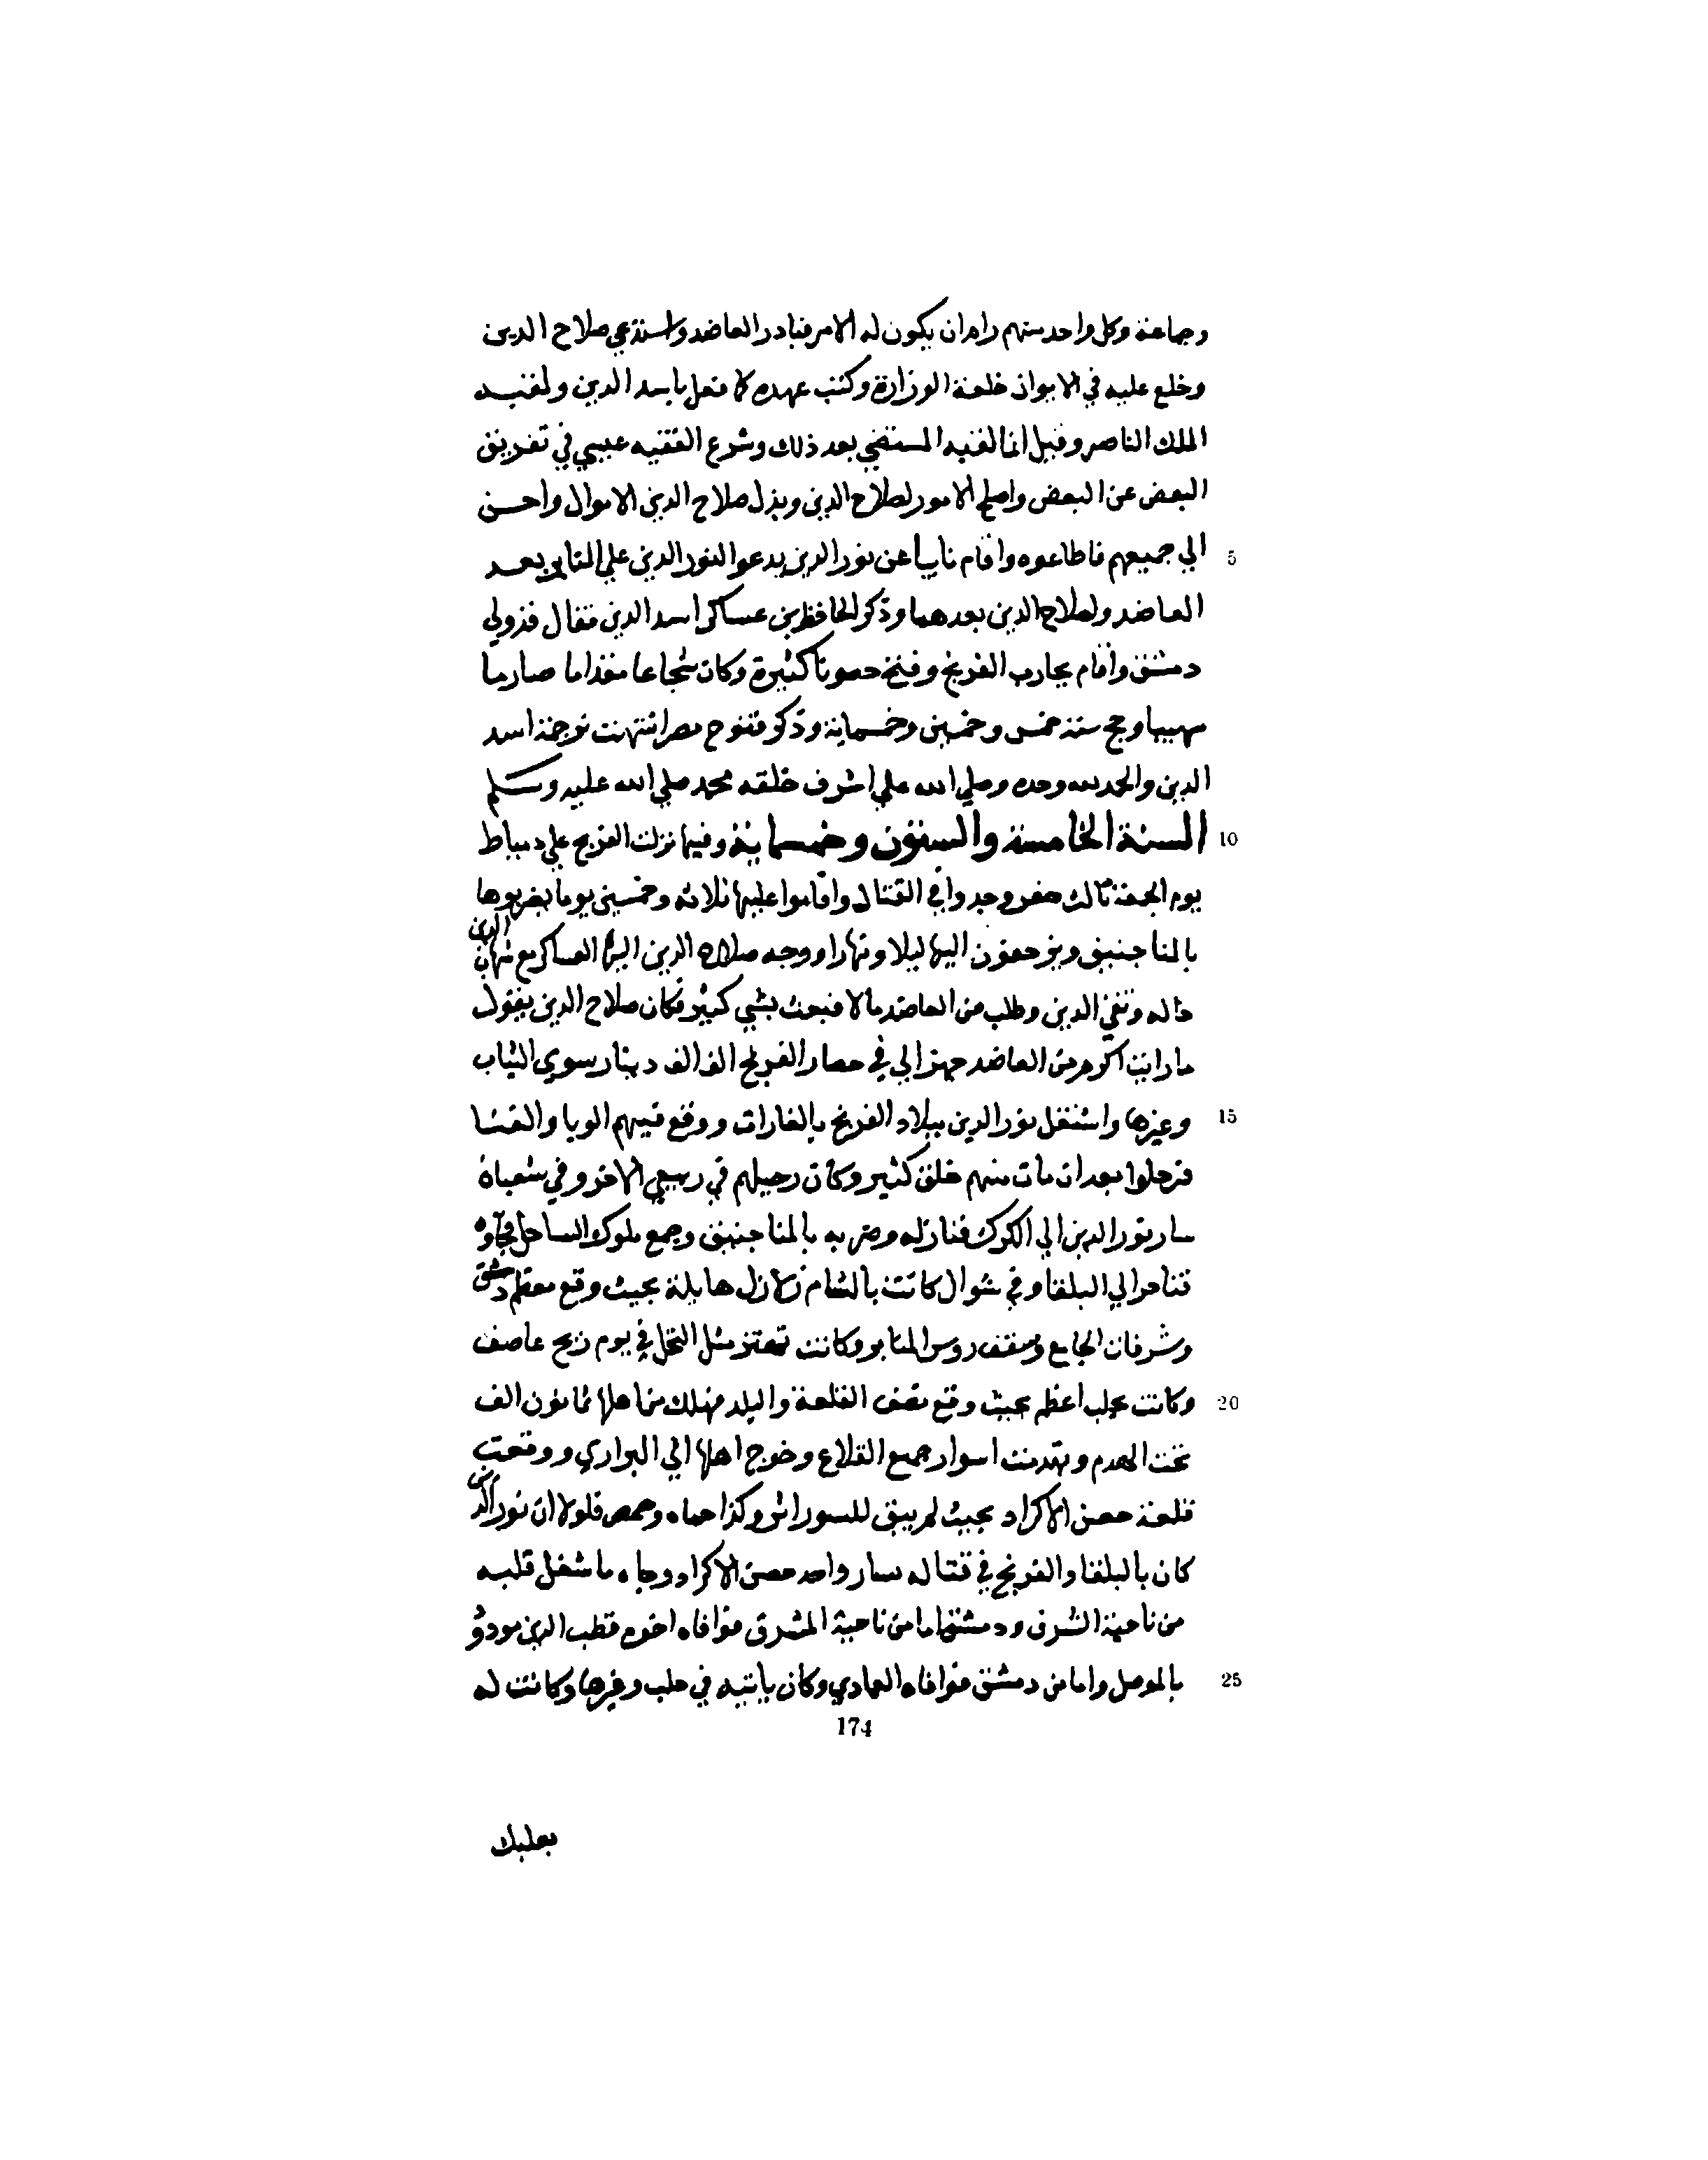 وجماعة وكل واحد منهم رام ان يكون له الامر فبادر العاضد واستدعي صلاح الدين
وخلع عليه في الايوان خلعة الوزارة وكتب عهده كما فعل باسد الدين ولقبه
الملك الناصر وقيل انما لقبه المستضي بعد ذلك وشرع الفقيه عيسي في تفريق
البعض عن البعض واصلح الامور لصلاح الدين وبذل صلاح الدين الاموال واحسن
5 الي جميعهم فاطاعوه واقام نايبا عن نور الدين يدعوا لنور الدين علي المنابر بعد
العاضد ولصلاح الدين بعدهما وذكر الحافظ بن عساكر اسد الدين فقال قد ولي
دمشق واقام يحارب الفرنج وفتح حصونا كثيرة وكان شجاعا مقداما صارما
مهيبا وحج سنة خمس وخمسين وخمسماية وذكر فتوح مصر انتهت ترجمة اسد
الدين والحمد لله وحده وصلي الله علي اشرف خلقه محمد صلي الله عليه وسلم
10 السنة الخامسة والستون وخمسماية وفيها نزلت الفرنج علي دمياط
يوم الجمعة ثالث صفر وجدوا في القتال واقاموا عليها ثلاثه وخمسين يوما يضربوها
بالمناجنيق ويزحفون اليها ليلا ونهارا ووجه صلاح الدين اليها العساكر مع شهاب الدين
خاله وتقي الدين وطلب من العاضد مالا فبعث بشي كثير فكان صلاح الدين يقول
ما رايت اكرم من العاضد جهز الي في حصار الفرنج الف الف دينار سوي الثياب
15 وغيرها واشتغل نور الدين ببلاد الفرنج بالغارات ووقع فيهم الوبا والفنا
فرحلوا بعد ان مات منهم خلق كثير وكان رحيلهم في ربيع الاخر وفي شعبان
سار نور الدين الي الكرك فنازله وضربه بالمناجنيق وجمع ملوك الساحل فجآوه
فتاخر الي البلقا وفي شوال كانت بالشام زلازل هايلة بحيث وقع معظم دمشق
وشرفات الجامع وسقف روس المنابر وكانت تهتز مثل النخل في يوم ريح عاصف
20 وكانت بحلب اعظم بحيث وقع نصف القلعة والبلد فهلك من اهلها ثمانون الف
تحت الهدم وتهدمت اسوار جميع القلاع وخرج اهلها الي البراري ووقعت
قلعة حصن الاكراد بحيث لم يبق للسور اثر وكذا حماه وحمص فلولا ان نور الدين
كان بالبلقا والفرنج في قتاله سار واخذ حصن الاكراد وجاه ما شغل قلبه
من ناحية الشرق ودمشق اما من ناحية المشرق فوافاه اخوه قطب الدين مودود
25 بالموصل واما من دمشق فوافاه العمادي وكان يايتيه في حلب وغيرها وكانت له
174
بعلبك